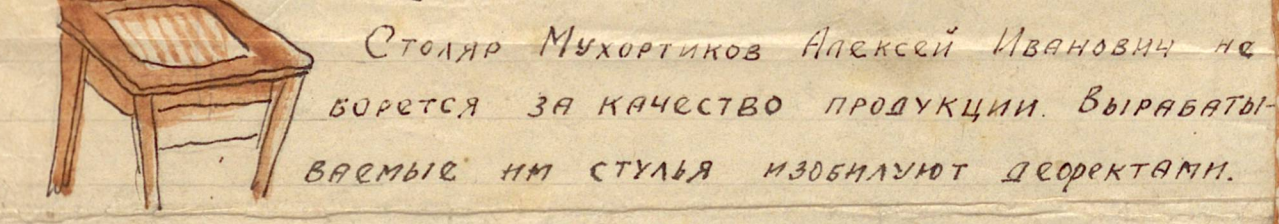 Столяр Мухортиков Алексей Иванович не
борется за качество продукции. Вырабаты-
ваемые им стулья изобилуют дефектами.